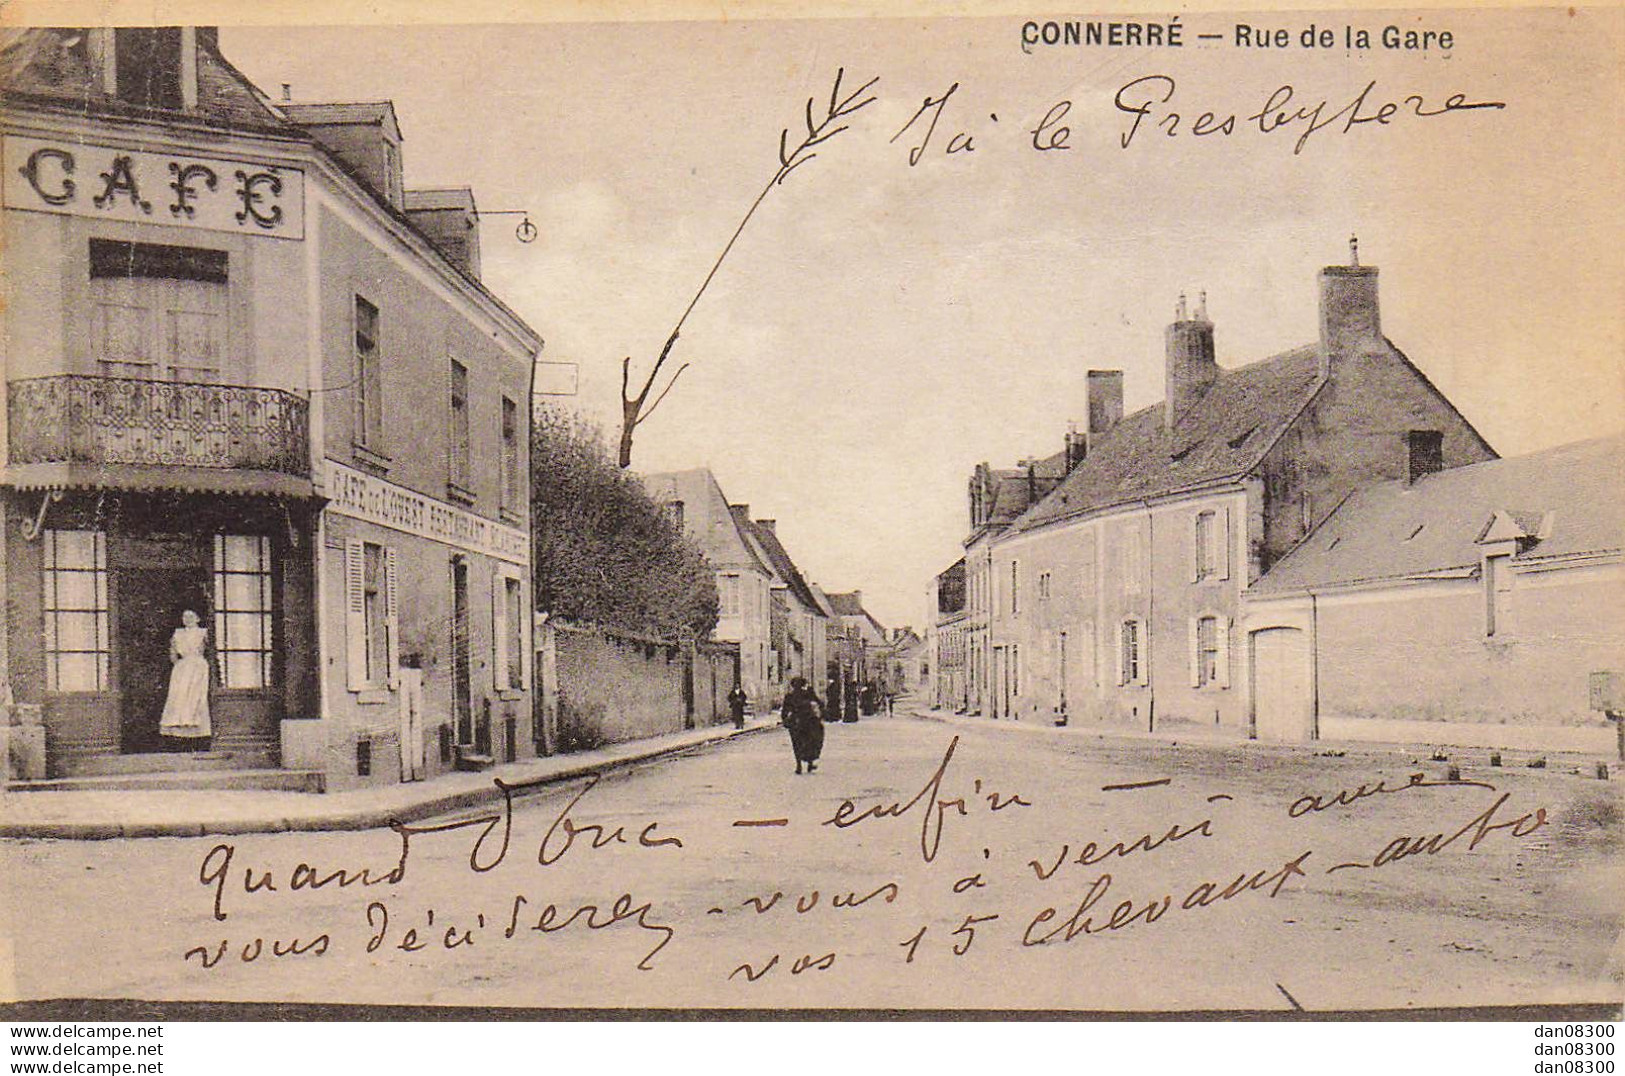 CONNERRÉ — Rue de la Gare
Ici le Presbytere
CAFÉ
CAFÉ DE L'OUEST RESTAURANT
Quand donc — enfin —
vous déciderez-vous à venir avec
vos 15 chevaux-auto
www.delcampe.net
www.delcampe.net
www.delcampe.net
dan08300
dan08300
dan08300